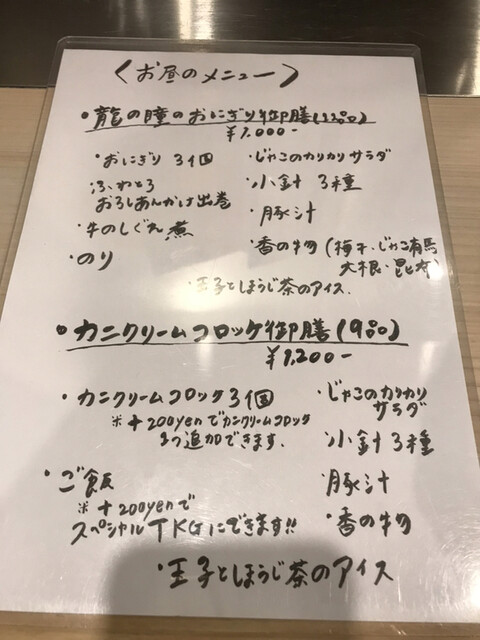 〈お昼のメニュー〉
・龍の瞳のおにぎり御膳(12品)
¥1,000-
・おにぎり 3個
・じゃこのカリカリサラダ
ふわとろ
おろしあんかけ出巻
小針 3種
・豚汁
・牛のしぐれ煮
・のり
・香の物(梅干、じゃこ有馬
大根・昆布)
・玉子とほうじ茶のアイス
・カニクリームコロッケ御膳(9品)
¥1,200-
・カニクリームコロッケ3個
※+200yenでカニクリームコロッケ
1つ追加できます。
・じゃこのカリカリ
サラダ
・小針3種
・ご飯
※+200yenで
スペシャルTKGにできます!!
・豚汁
・香の物
・玉子とほうじ茶のアイス